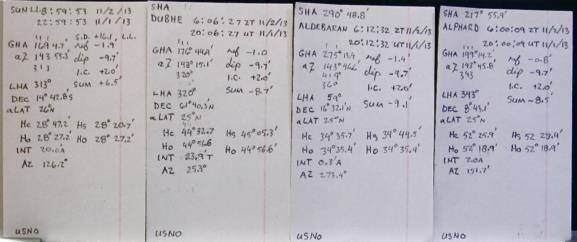 SUN LL 8:59:53 11/2/13
22:59:53 11/1/13
S.D. +16.1, L.L.
GHA 169° 4.7' ref -1.9'
aλ 143° 55.3' dip -9.7'
313 I.C. +2.0'
LHA 313° SUM +6.5'
DEC 14° 42.8 S
aLAT 26°N
Hc 28° 47.2' Hs 28° 20.7'
Ho 28° 27.2' Ho 28° 27.2'
INT 20.0 A
AZ 126.2°
USNO
SHA
DUBHE 6:06:27 ZT 11/2/13
20:06:27 UT 11/1/13
GHA 176° 44.9' ref -1.0
aλ 143° 15.1' dip -9.7'
320° I.C. +2.0'
LHA 320° SUM -8.7'
DEC 61° 40.3 N
aLAT 25°N
Hc 44° 32.7 Hs 45° 05.3'
Ho 44° 56.6 Ho 44° 56.6'
INT 23.9' T
AZ 25.3°
USNO
SHA 290° 48.8'
ALDEBARAN 6:12:32 ZT 11/2/13
20:12:32 UT 11/1/13
GHA 275° 13.4 ref -1.4'
aλ 143° 46.6' dip -9.7'
419° I.C. +2.0'
360
LHA 59° SUM -9.1'
DEC 16° 32.1 N
aLAT 25°N
Hc 34° 35.7' Hs 34° 44.5'
Ho 34° 35.4' Ho 34° 35.4'
INT 0.3' A
AZ 273.4°
USNO
SHA 217° 55.9'
ALPHARD 6:00:09 ZT 11/2/13
20:00:09 UT 11/1/13
GHA 199° 14.2' ref -0.8'
aλ 143° 45.8' dip -9.7'
343 I.C. +2.0'
LHA 343° SUM -8.5'
DEC 8° 43.1'
aLAT 25°N
Hc 52° 20.9' Hs 52 27.4'
Ho 52° 18.9' Ho 52° 18.9'
INT 2.0 A
AZ 151.7°
USNO